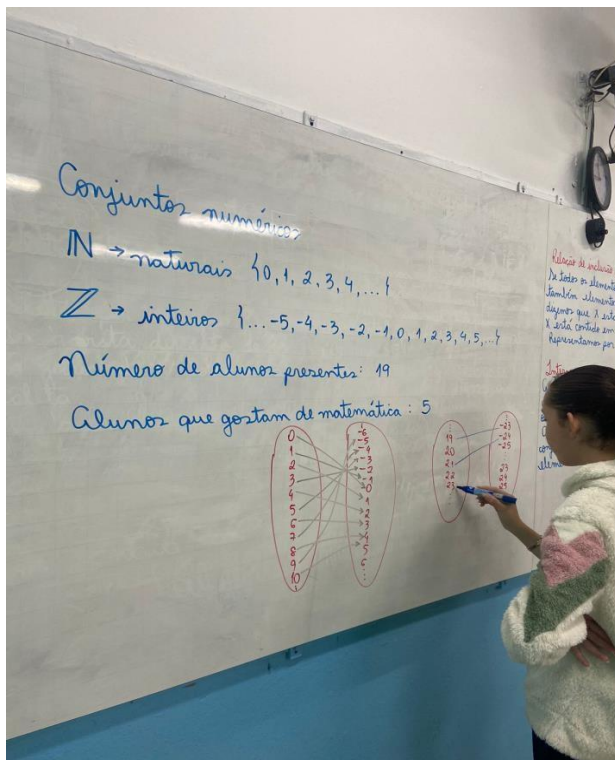 Conjuntos numéricos
ℕ → naturais {0, 1, 2, 3, 4, ...}
ℤ → inteiros {... -5, -4, -3, -2, -1, 0, 1, 2, 3, 4, 5, ...}
Número de alunos presentes: 19
Alunos que gostam de matemática: 5
0
1
2
3
4
5
6
7
8
9
10
-6
-5
-4
-3
-2
-1
0
1
2
3
4
5
6
19
20
21
22
23
-23
-24
-25
23
24
25
Relação de inclusão
Se todos os
também
dizemos que X
X está contido em
Representamos por